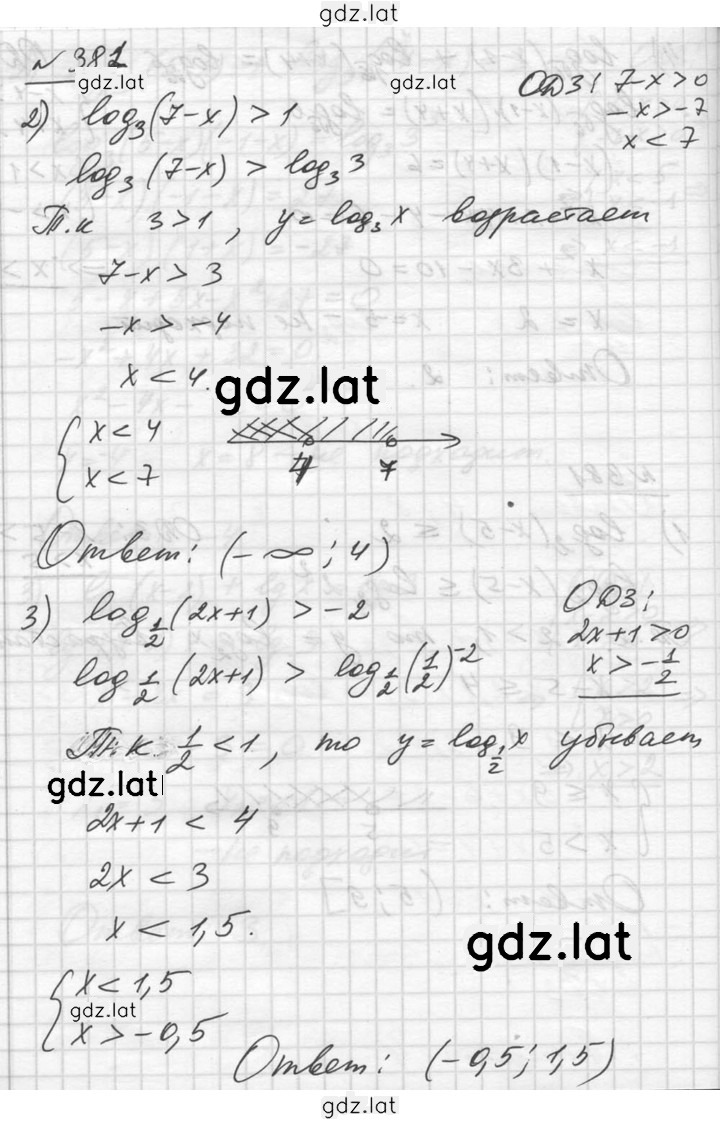 gdz.lat
№ 381
gdz.lat gdz.lat
ОДЗ: 7-x>0
-x>-7
x<7
2) log₃(7-x)>1
log₃(7-x)>log₃3
Т.к 3>1, y=log₃x возрастает
7-x>3
-x>-4
x<4.
gdz.lat
{ x<4
x<7
4 7
Ответ: (-∞; 4)
3) log_{1/2}(2x+1)>-2
ОДЗ:
2x+1>0
x>-1/2
log_{1/2}(2x+1)>log_{1/2}(1/2)⁻²
Т.к. 1/2<1, то y=log_{1/2}x убывает
gdz.lat
2x+1<4
2x<3
x<1,5.
gdz.lat
{ x<1,5
gdz.lat
x>-0,5
Ответ: (-0,5; 1,5)
gdz.lat